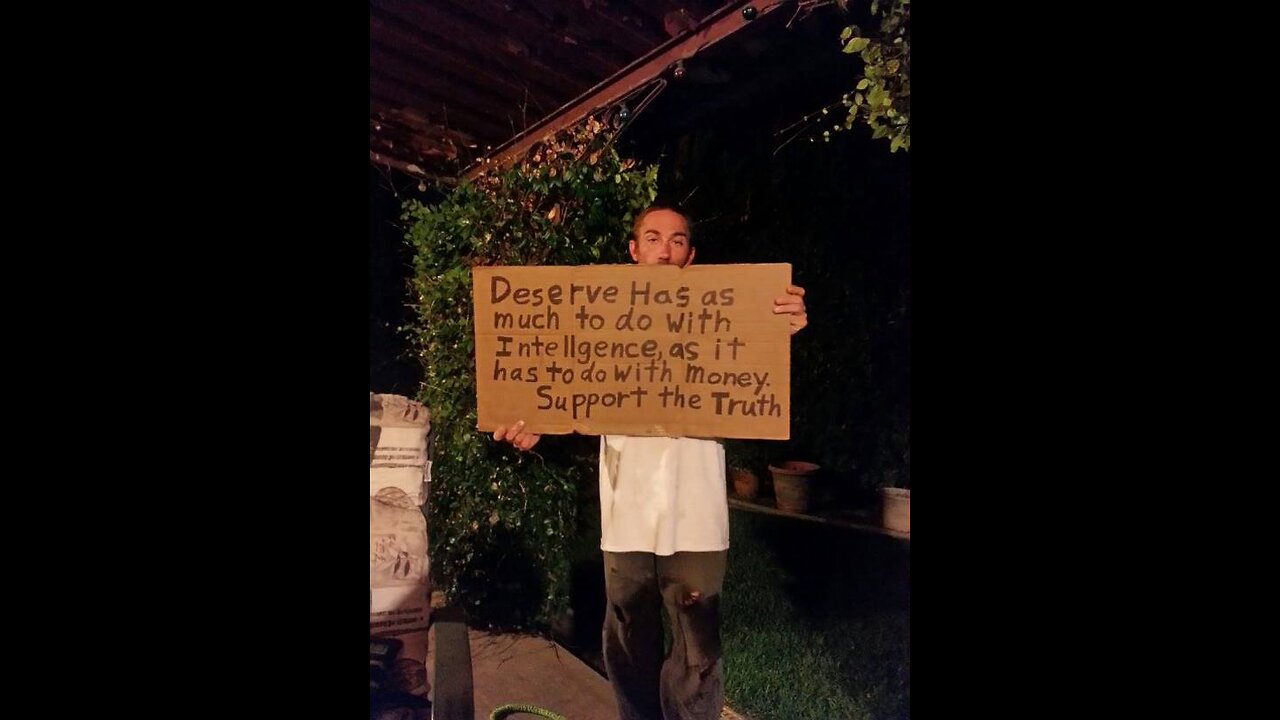 Deserve Has as
much to do with
Intellgence, as it
has to do with money.
Support the Truth